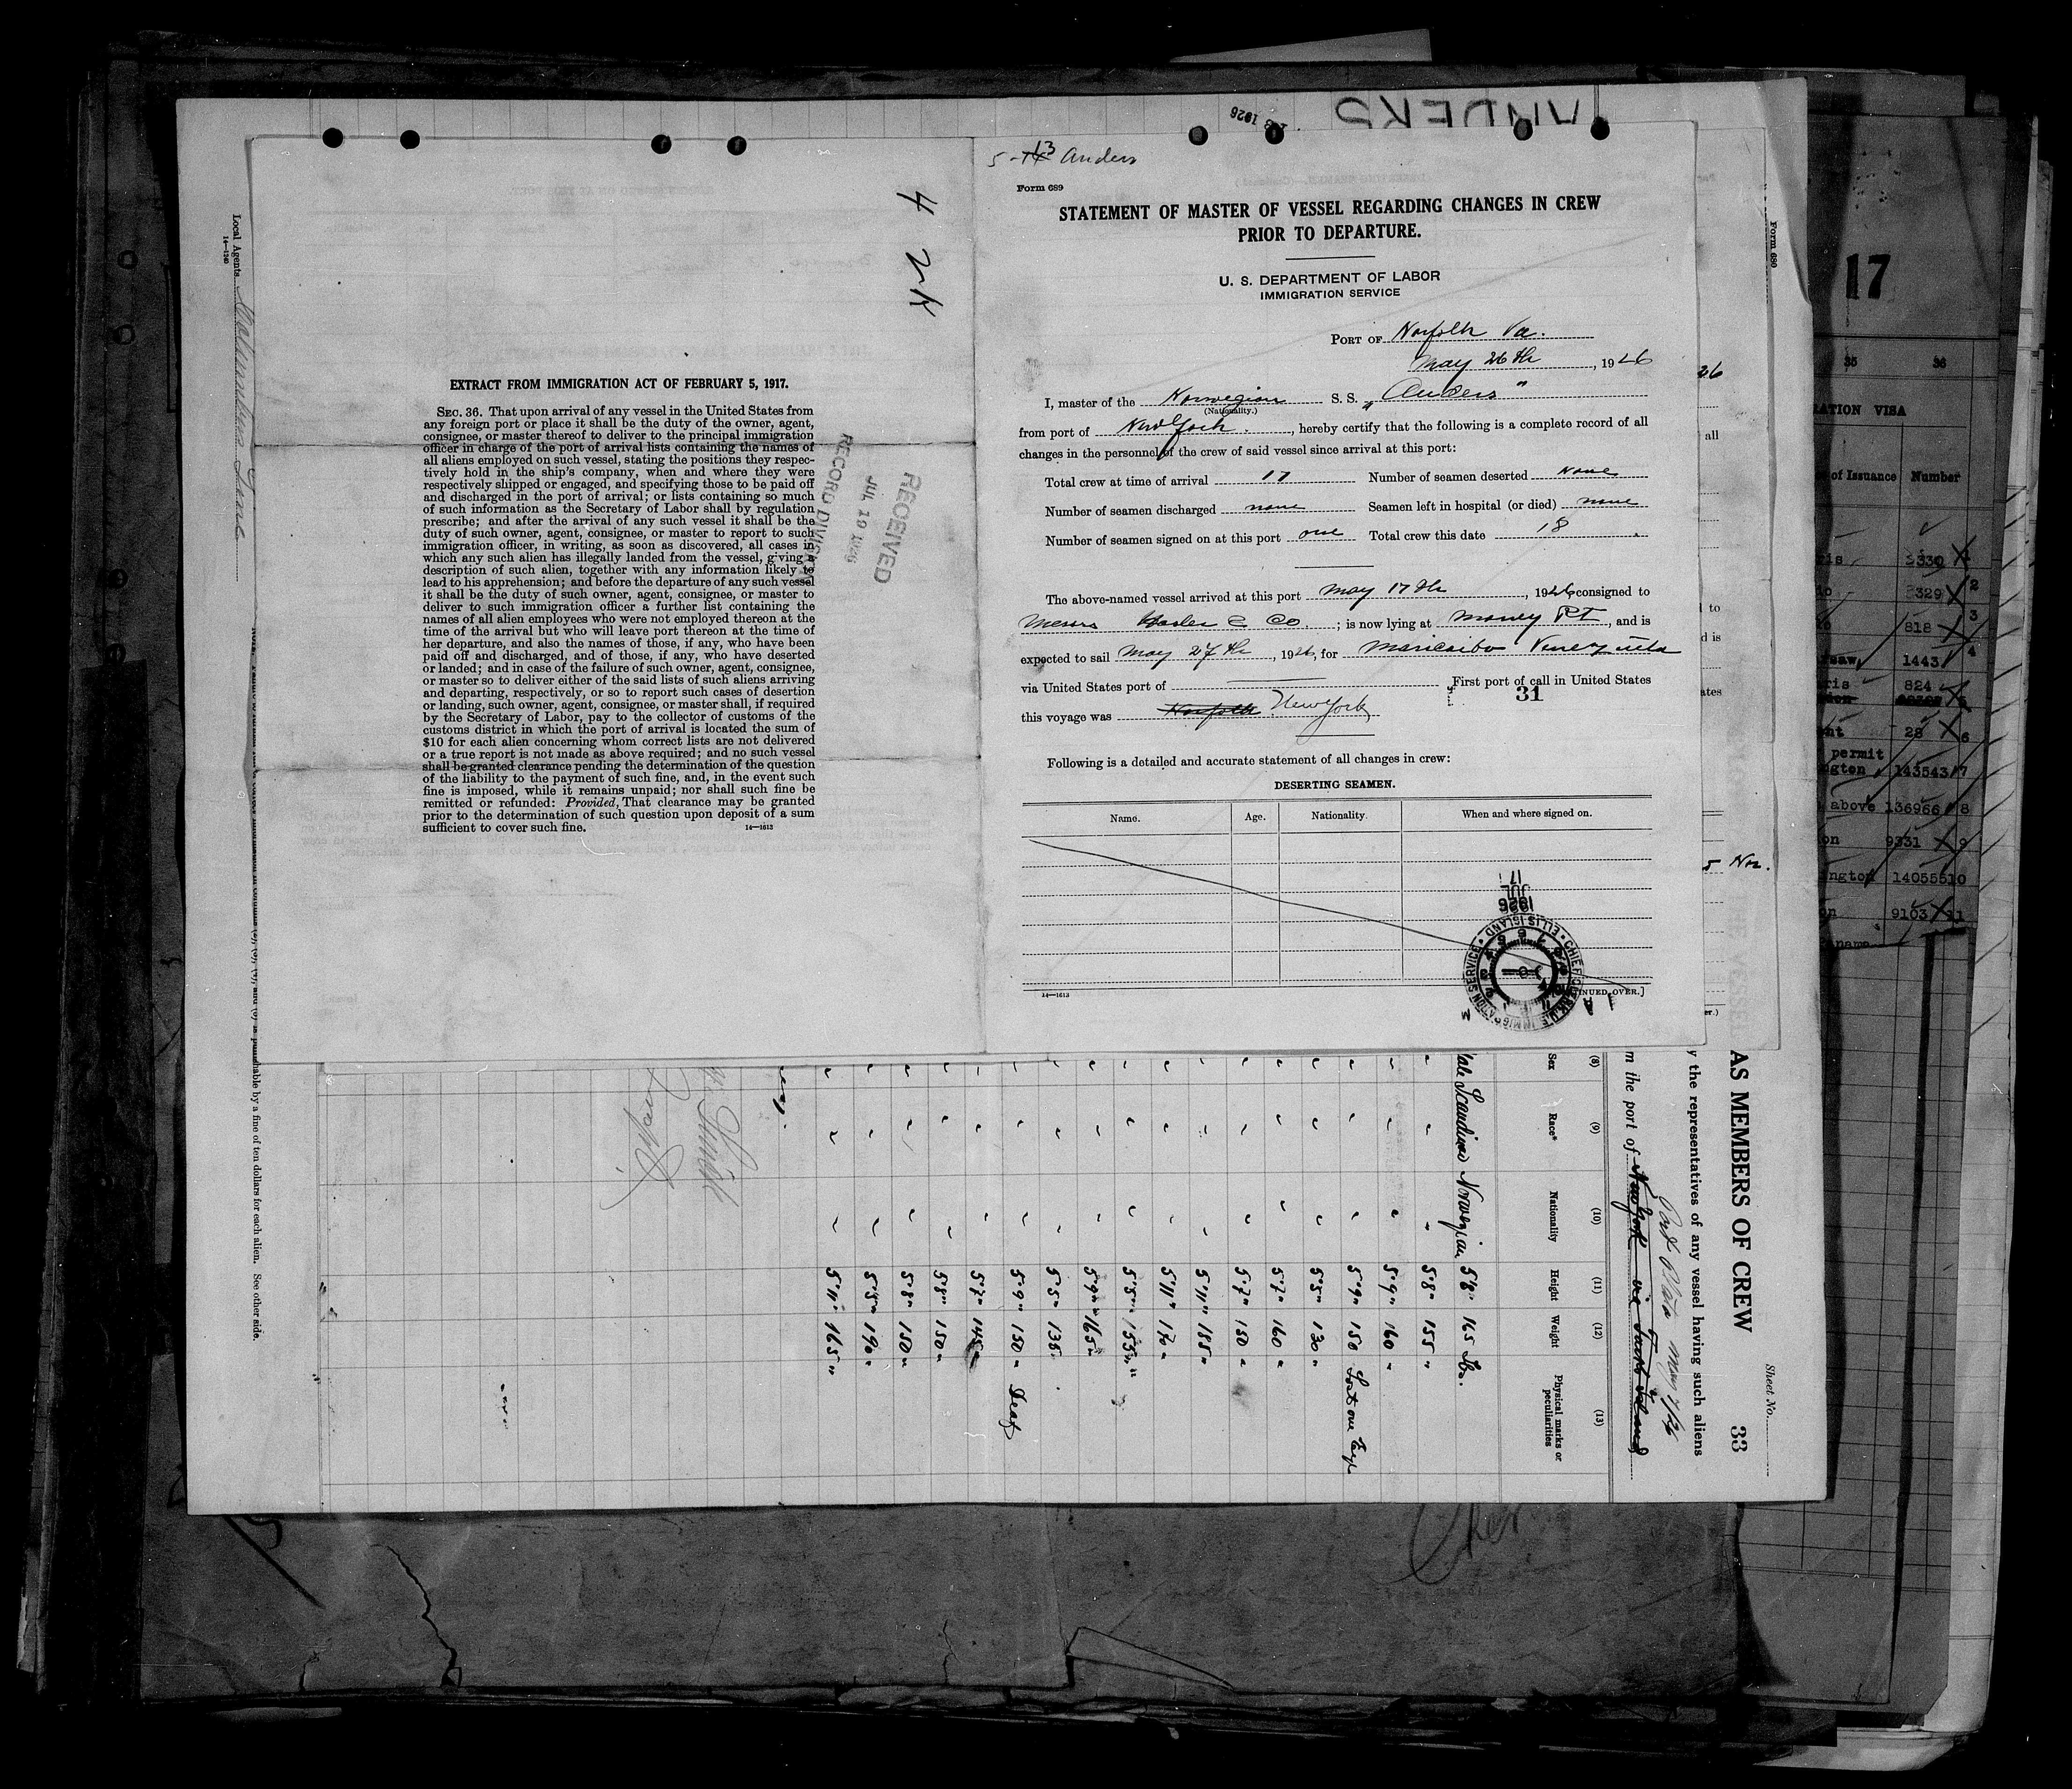 5-13 Anders
Form 689
STATEMENT OF MASTER OF VESSEL REGARDING CHANGES IN CREW
PRIOR TO DEPARTURE.
U. S. DEPARTMENT OF LABOR
IMMIGRATION SERVICE
PORT OF Norfolk Va.
May 26th, 1926
I, master of the Norwegian S. S. „Anders"
(Nationality.)
from port of New York, hereby certify that the following is a complete record of all
changes in the personnel of the crew of said vessel since arrival at this port:
Total crew at time of arrival 17 Number of seamen deserted None
Number of seamen discharged none Seamen left in hospital (or died) none
Number of seamen signed on at this port one Total crew this date 18.
The above-named vessel arrived at this port May 17th, 1926 consigned to
Messrs & Co.; is now lying at Money Pt, and is
expected to sail May 27th, 1926, for Maricaibo Venezuela
via United States port of First port of call in United States
31
this voyage was Norfolk New York
Following is a detailed and accurate statement of all changes in crew:
DESERTING SEAMEN.
Name. Age. Nationality. When and where signed on.
14—1613
[CONTINUED OVER.]
1926
JUL
17
CHIEF CLERK U.S. IMMIGRATION SERVICE • ELLIS ISLAND
4
EXTRACT FROM IMMIGRATION ACT OF FEBRUARY 5, 1917.
SEC. 36. That upon arrival of any vessel in the United States from
any foreign port or place it shall be the duty of the owner, agent,
consignee, or master thereof to deliver to the principal immigration
officer in charge of the port of arrival lists containing the names of
all aliens employed on such vessel, stating the positions they respec-
tively hold in the ship's company, when and where they were
respectively shipped or engaged, and specifying those to be paid off
and discharged in the port of arrival; or lists containing so much
of such information as the Secretary of Labor shall by regulation
prescribe; and after the arrival of any such vessel it shall be the
duty of such owner, agent, consignee, or master to report to such
immigration officer, in writing, as soon as discovered, all cases in
which any such alien has illegally landed from the vessel, giving a
description of such alien, together with any information likely to
lead to his apprehension; and before the departure of any such vessel
it shall be the duty of such owner, agent, consignee, or master to
deliver to such immigration officer a further list containing the
names of all alien employees who were not employed thereon at the
time of the arrival but who will leave port thereon at the time of
her departure, and also the names of those, if any, who have been
paid off and discharged, and of those, if any, who have deserted
or landed; and in case of the failure of such owner, agent, consignee,
or master so to deliver either of the said lists of such aliens arriving
and departing, respectively, or so to report such cases of desertion
or landing, such owner, agent, consignee, or master shall, if required
by the Secretary of Labor, pay to the collector of customs of the
customs district in which the port of arrival is located the sum of
$10 for each alien concerning whom correct lists are not delivered
or a true report is not made as above required; and no such vessel
shall be granted clearance pending the determination of the question
of the liability to the payment of such fine, and, in the event such
fine is imposed, while it remains unpaid; nor shall such fine be
remitted or refunded: Provided, That clearance may be granted
prior to the determination of such question upon deposit of a sum
sufficient to cover such fine.
14—1613
RECEIVED
JUL 19 1926
RECORD DIVISION
Local Agents Columbus Line
14—1240
able by a fine of ten dollars for each alien. See other side.
ANDERS
Form 680
Sheet No.
AS MEMBERS OF CREW 33
y the representatives of any vessel having such aliens
m the port of New York via Turks Island
Port Plata May 7/26
(8) (9) (10) (11) (12) (13)
Sex Race* Nationality Height Weight Physical marks or peculiarities
Male Scandinav Norwegian 5'8" 165 lb.
" " " 5'8" 155 "
" " " 5'9" 160 "
" " " 5'9" 150 Lost one Eye
" " " 5'5" 130 "
" " " 5'7" 160 "
" " " 5'7" 150 "
" " " 5'11" 185 "
" " " 5'11" 170 "
" " " 5'5" 155 "
" " " 5'9" 165 "
" " " 5'5" 135
" " " 5'9" 150 " Deaf
" " " 5'7" 145 "
" " " 5'8" 150 "
" " " 5'8" 150 "
" " " 5'5" 190 "
" " " 5'11" 165 "
26
all
to
d is
ates
5 Nor.
17
35 36
RATION VISA
of Issuance Number
330
329 2
818 3
1443 4
824
28 6
permit
ngton 143543 7
above 136966 8
on 9331 9
ington 140555 10
on 9103 11